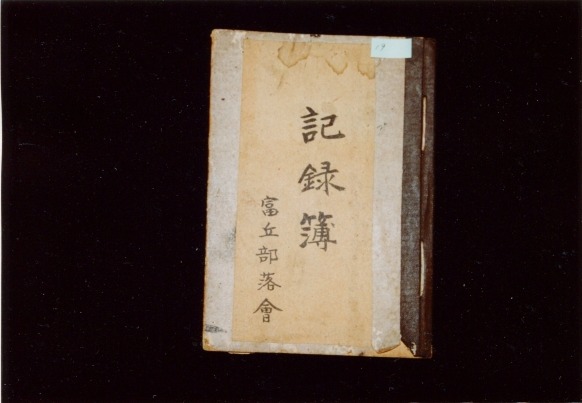 記録簿
富丘部落會